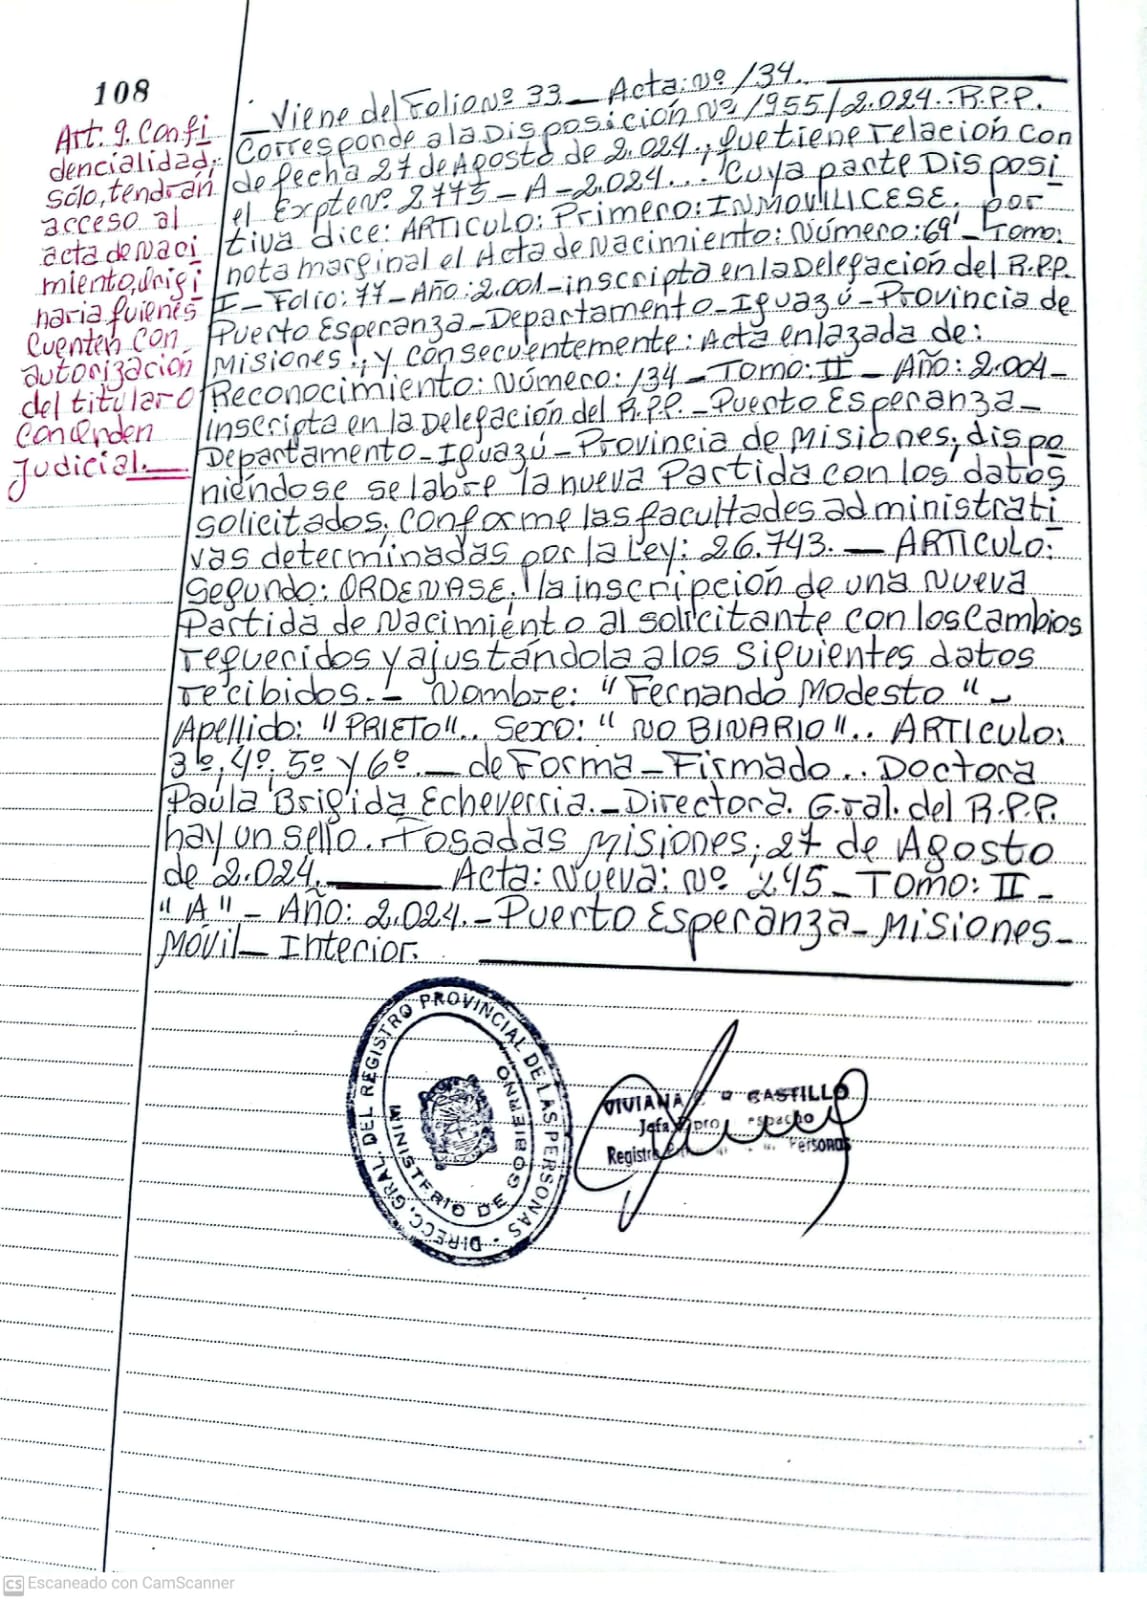 108
Art. 9. Confi
dencialidad,
sólo, tendrán
acceso al
acta de naci
miento, origi
naria quienes
cuenten con
autorización
del titular o
con orden
judicial.
Viene del Folio Nº 33 — Acta: Nº 134.
Corresponde a la Disposición Nº 1955/2.024.. R.P.P.
de fecha 27 de Agosto de 2.024., que tiene relación con
el Expte Nº. 2775 – A – 2.024... Cuya parte Disposi
tiva dice: ARTICULO: Primero: INMOVILICESE, por
nota marginal el Acta de Nacimiento: Número: 69 – Tomo:
I – Folio: 77 – Año: 2.001 – inscripta en la Delegación del R.P.P.
Puerto Esperanza – Departamento – Iguazú – Provincia de
Misiones., y consecuentemente: Acta enlazada de:
Reconocimiento: Número: 134 – Tomo: II – Año: 2.004 –
Inscripta en la Delegación del R.P.P. – Puerto Esperanza –
Departamento – Iguazú – Provincia de Misiones, dispo
niéndose se labre la nueva Partida con los datos
solicitados, conforme las facultades administrati
vas determinadas por la Ley: 26.743. — ARTICULO:
Segundo: ORDENASE, la inscripción de una nueva
Partida de Nacimiento al solicitante con los Cambios
requeridos y ajustándola a los siguientes datos
recibidos. – Nombre: "Fernando Modesto" –
Apellido: "PRIETO".. Sexo: "NO BINARIO".. ARTICULO:
3º, 4º, 5º y 6º. — de Forma – Firmado.. Doctora
Paula Brigida Echeverria. – Directora. Gral. del R.P.P.
hay un sello. Posadas Misiones, 27 de Agosto
de 2.024. — Acta: Nueva: Nº 245 – Tomo: II –
"A" – Año: 2.024. – Puerto Esperanza – Misiones –
Móvil – Interior.
DIRECC. GRAL. DEL REGISTRO PROVINCIAL DE LAS PERSONAS
MINISTERIO DE GOBIERNO
VIVIANA CASTILLO
Jefa
Personas
CS Escaneado con CamScanner